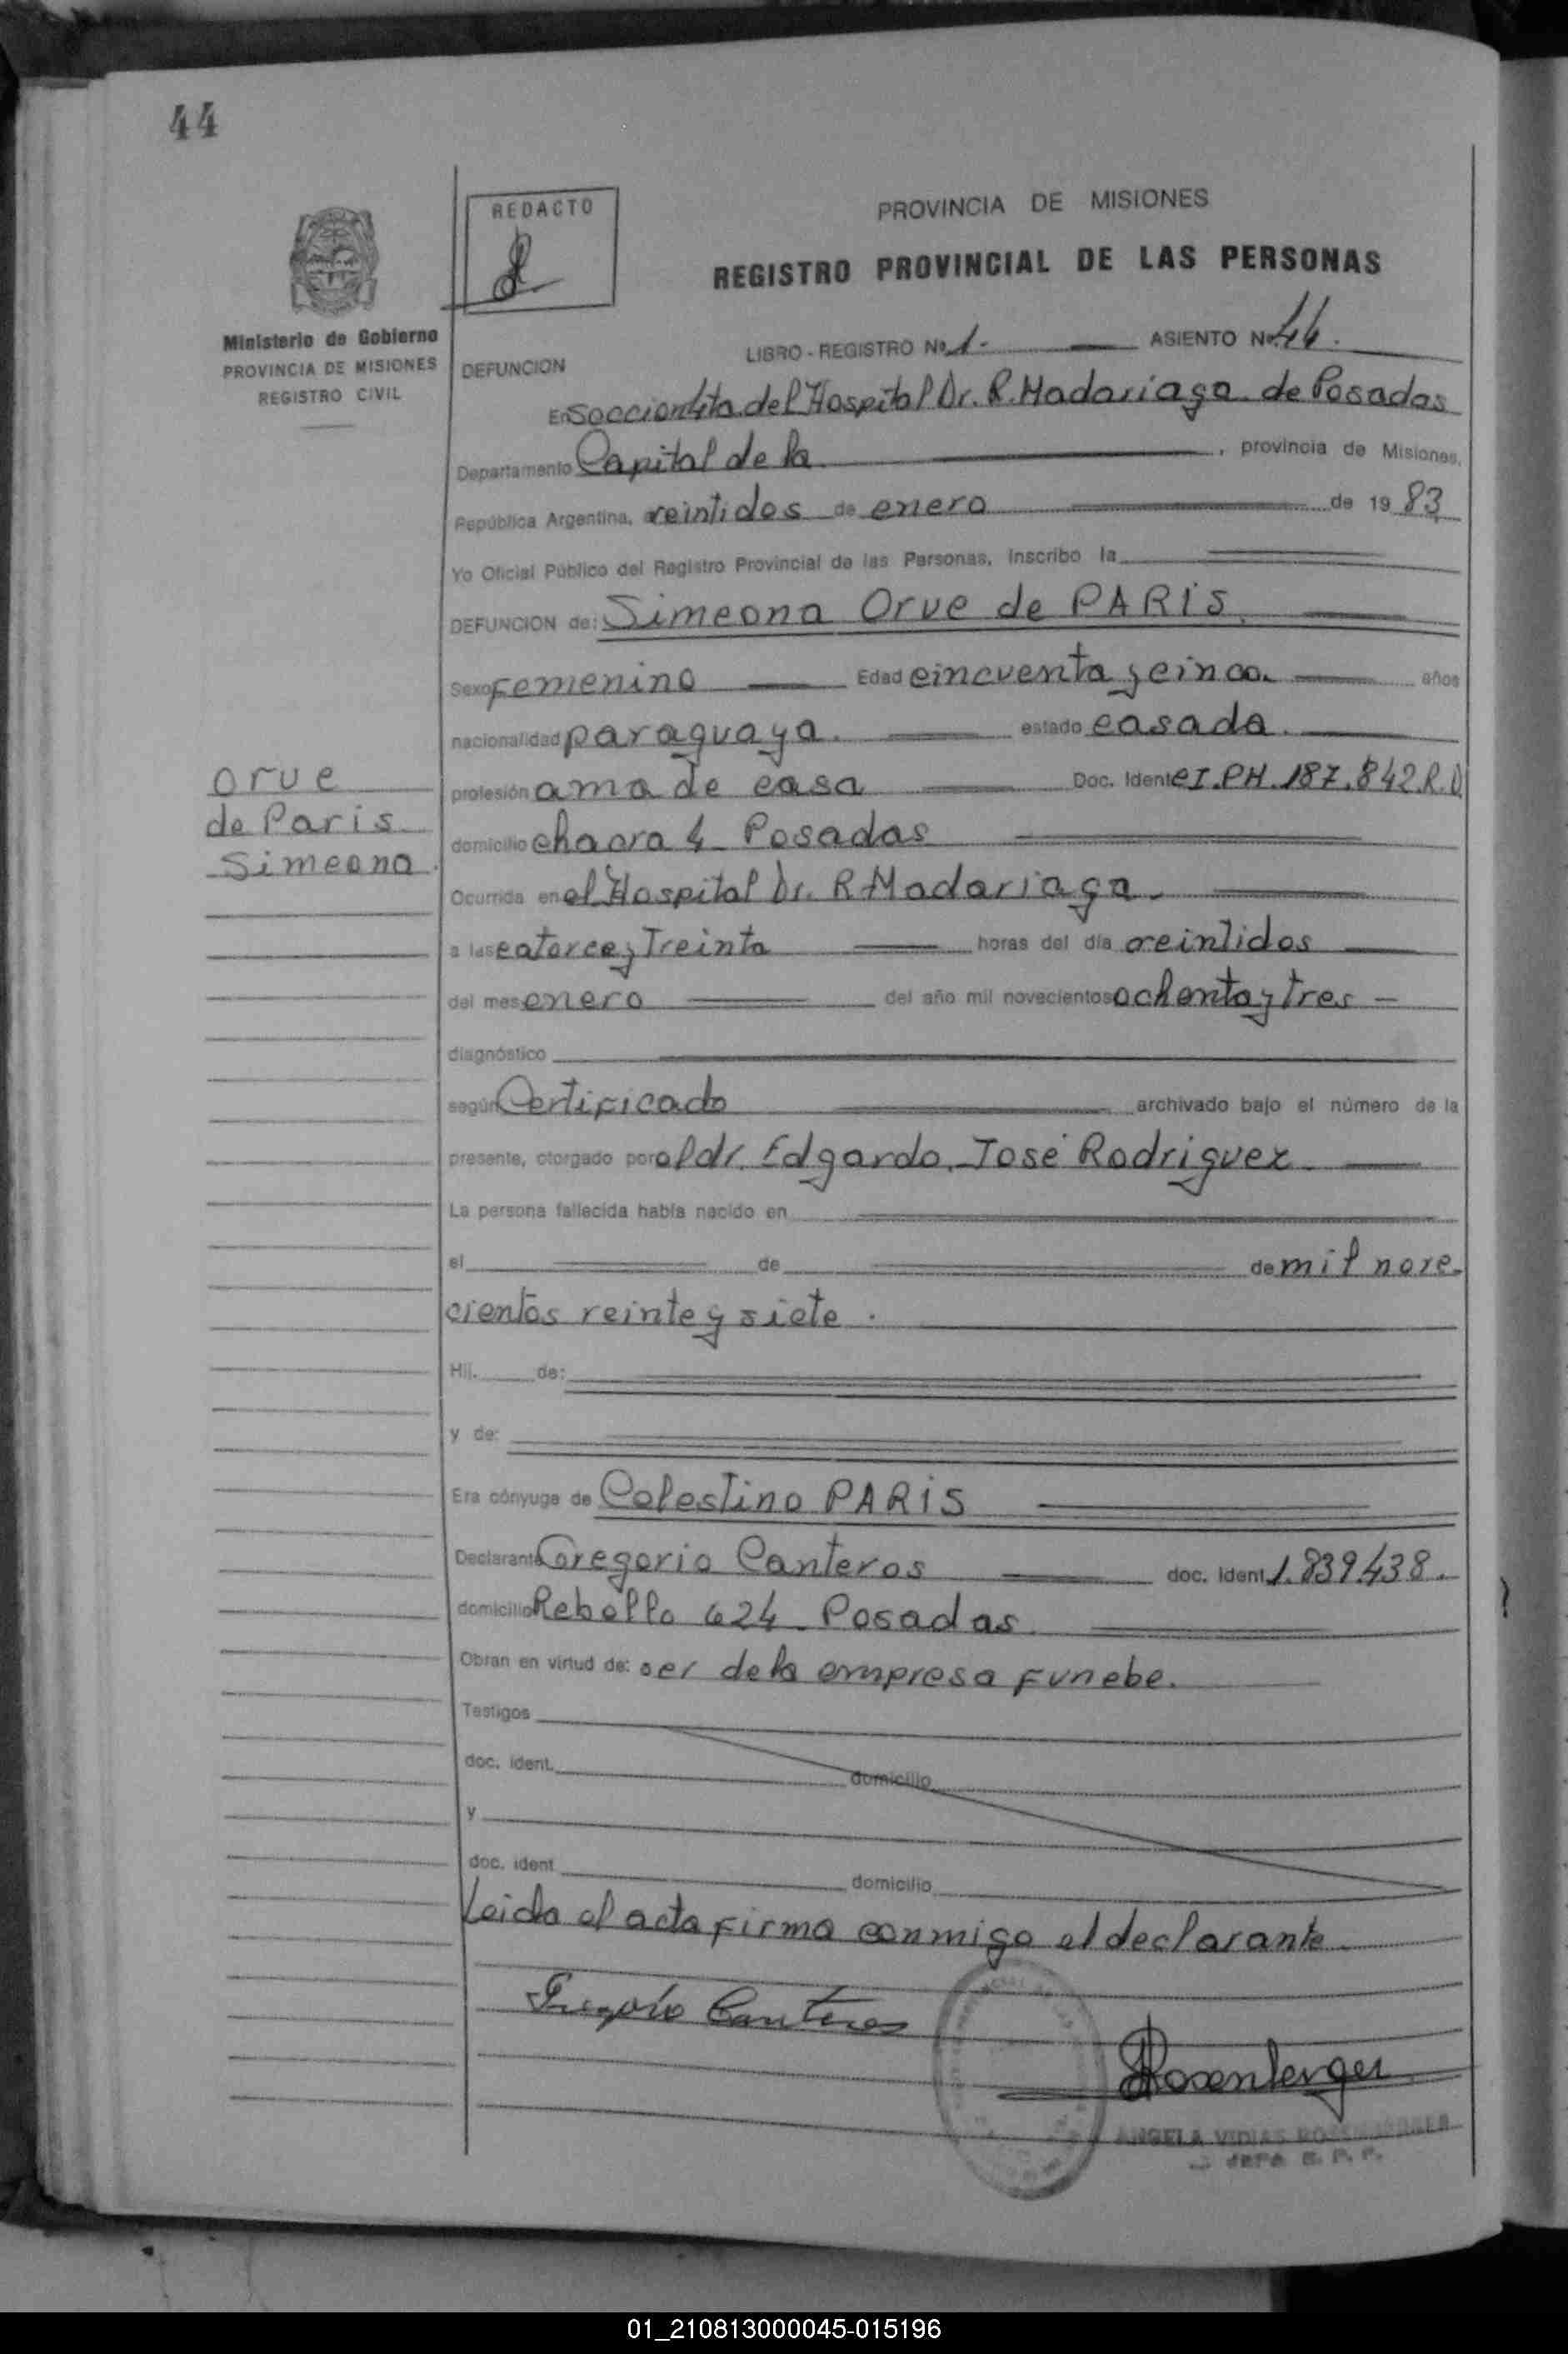 44
REDACTO
PROVINCIA DE MISIONES
REGISTRO PROVINCIAL DE LAS PERSONAS
Ministerio de Gobierno
PROVINCIA DE MISIONES
REGISTRO CIVIL
LIBRO - REGISTRO Nº 1.- ASIENTO Nº 44.
DEFUNCION
En del Hospital Dr. R. Madariaga de Posadas
Departamento Capital de la , provincia de Misiones,
República Argentina, a veintidos de enero de 1983
Yo Oficial Público del Registro Provincial de las Personas, Inscribo la
DEFUNCION de: Simeona Orue de PARIS.
Sexo Femenino Edad cincuenta y cinco. años
nacionalidad paraguaya. estado casada.
Orue
de Paris
Simeona.
profesión ama de casa Doc. Ident. 187.842.
domicilio chacra 4 Posadas
Ocurrida en el Hospital Dr. R. Madariaga.
a las catorce y Treinta horas del día veintidos
del mes enero del año mil novecientos ochenta y tres -
diagnóstico
según Certificado archivado bajo el número de la
presente, otorgado por el dr. Edgardo José Rodriguez
La persona fallecida había nacido en
el de de mil nove-
cientos veinte y siete.
Hij. de:
y de:
Era cónyuge de Celestino PARIS
Declarante Gregorio Canteros doc. Ident. 1.839.438.
domicilio Rebollo 624 Posadas
Obran en virtud de: ser de la empresa Funebe.
Testigos
doc. ident. domicilio
y
doc. ident. domicilio
Leida el acta firma conmigo el declarante.
Gregorio Canteros
Rosenberger
ANGELA VIDIAS ROSENBERGER
JEFA R. P. P.
01_210813000045-015196